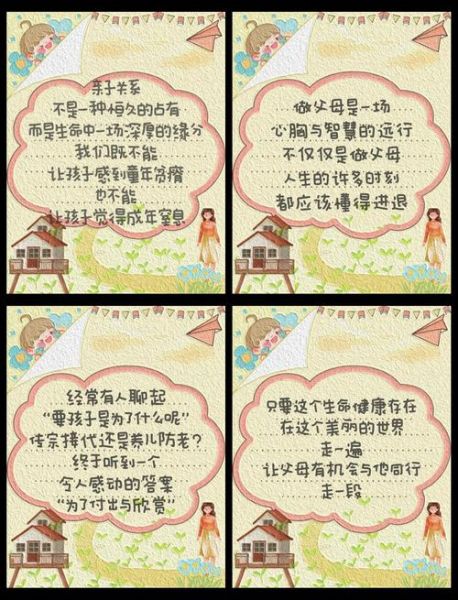 亲子关系
不是一种恒久的占有
而是生命中一场深厚的缘分
我们既不能
让孩子感到童年贫瘠
也不能
让孩子觉得成年窒息
做父母是一场
心胸与智慧的远行
不仅仅是做父母
人生的许多时刻
都应该懂得进退
经常有人聊起
“要孩子是为了什么呢”
传宗接代还是养儿防老？
终于听到一个
令人感动的答案
“为了付出与欣赏”
只要这个生命健康存在
在这个美丽的世界
走一遍
让父母有机会与他同行
走一段